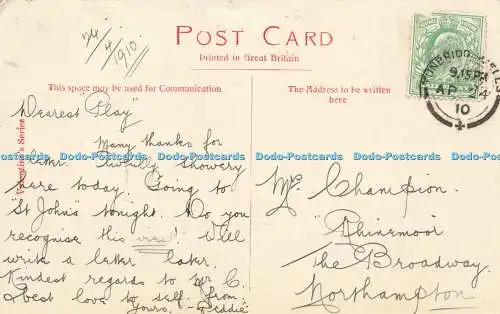 24/4/1910
POST CARD
Printed in Great Britain
This space may be used for Communication.
The Address to be written here
Valentine's Series
TUNBRIDGE WELLS
9.15 PM
AP 24
10
Dearest Play
Many thanks for
letter. Awfully showery
here today. Going to
"St John's" tonight. Do you
recognise this view? Will
write a letter later.
Kindest regards to Mr C.
& best love to self. From
Yours. - Eddie
Mrs Champion.
Rhinemoor
The Broadway.
Northampton
Dodo-Postcards Dodo-Postcards Dodo-Postcards Dodo-Postcards Dodo-Postcards Dodo-Postcards